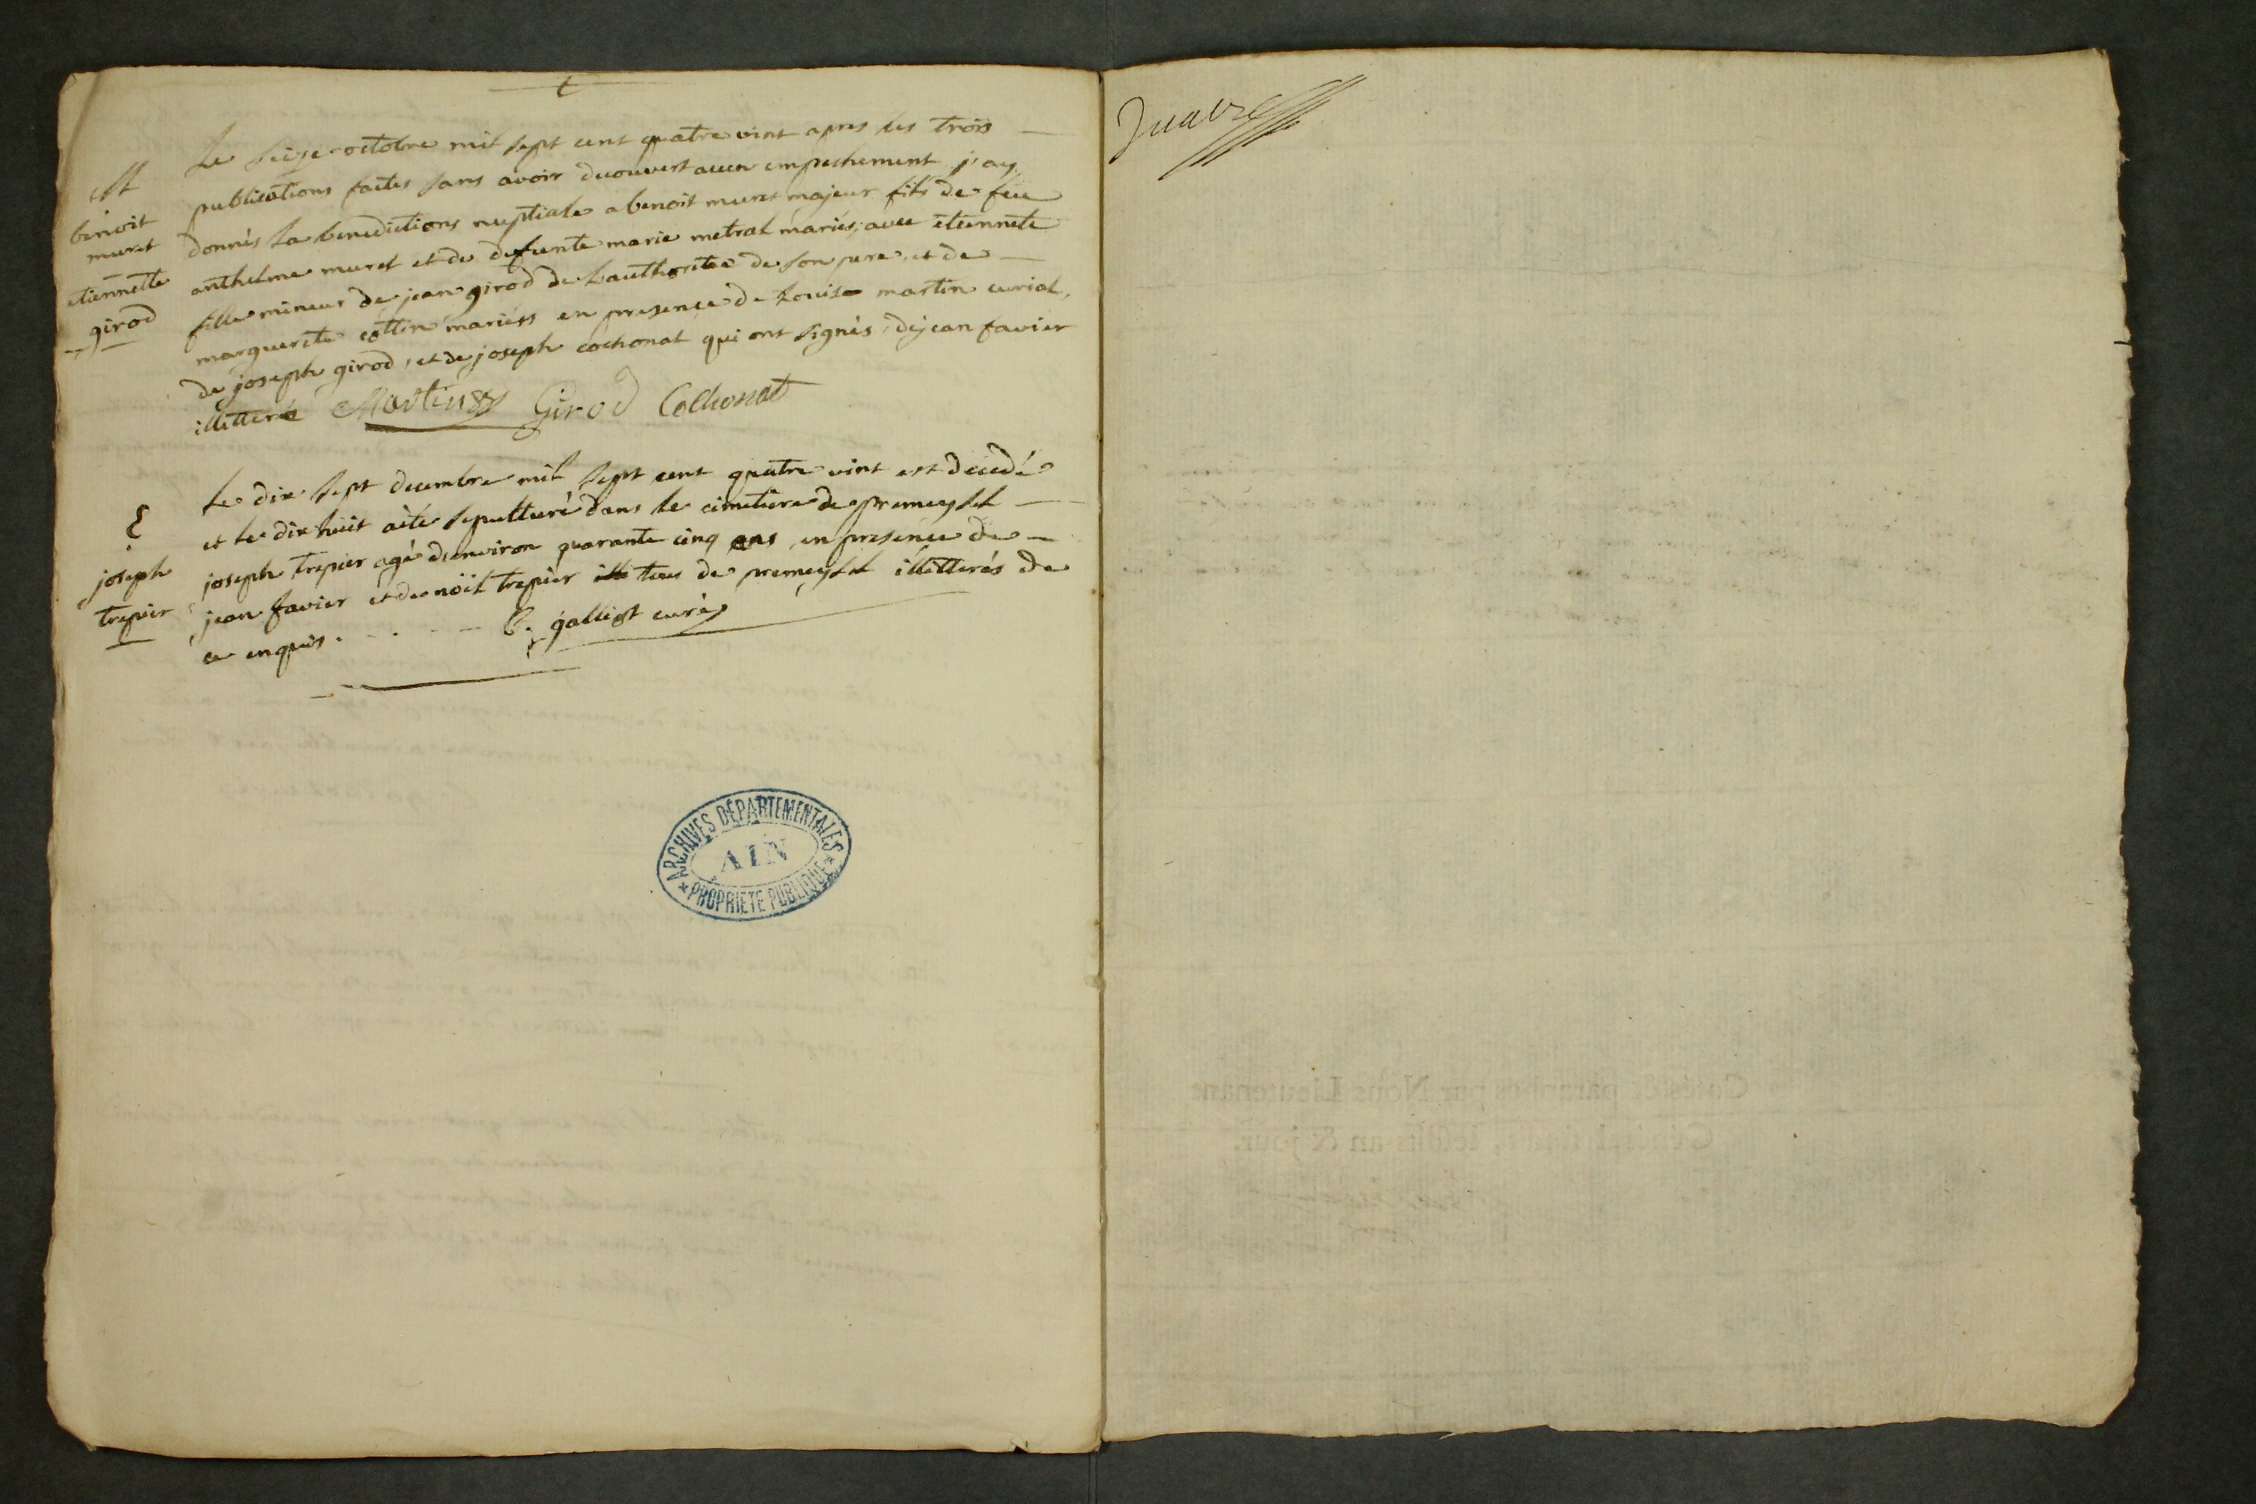 M
benoit
muret
etiennette
girod
Le seize octobre mil sept cent quatre vint apres les trois
publications faites sans avoir decouvert aucun empechement j'ay
donnés la benedictions nuptiale a benoit muret majeur fils de feu
anthelme muret et de defunte marie metral mariés, avec etiennete
fille mineur de jean girod de l'authoritée de son pere, et de
marguerite collin mariess en presence de Louis martin curial,
de joseph girod, et de joseph cochonat qui ont signés, dejean favier
illitteré Martin Girod Cochonat
S
joseph
trepier
Le dix sept decembre mil sept cent quatre vint est decedé
et le dix huit aété sepulturé dans le cimetiere de premeyssel
joseph trepier agé d'environ quarante cinq ans en presence de
jean favier et de noël trepier tous de premeyssel illitterés de
ce enquis. B. galliot curé
ARCHIVES DÉPARTEMENTALES
AIN
PROPRIÉTÉ PUBLIQUE